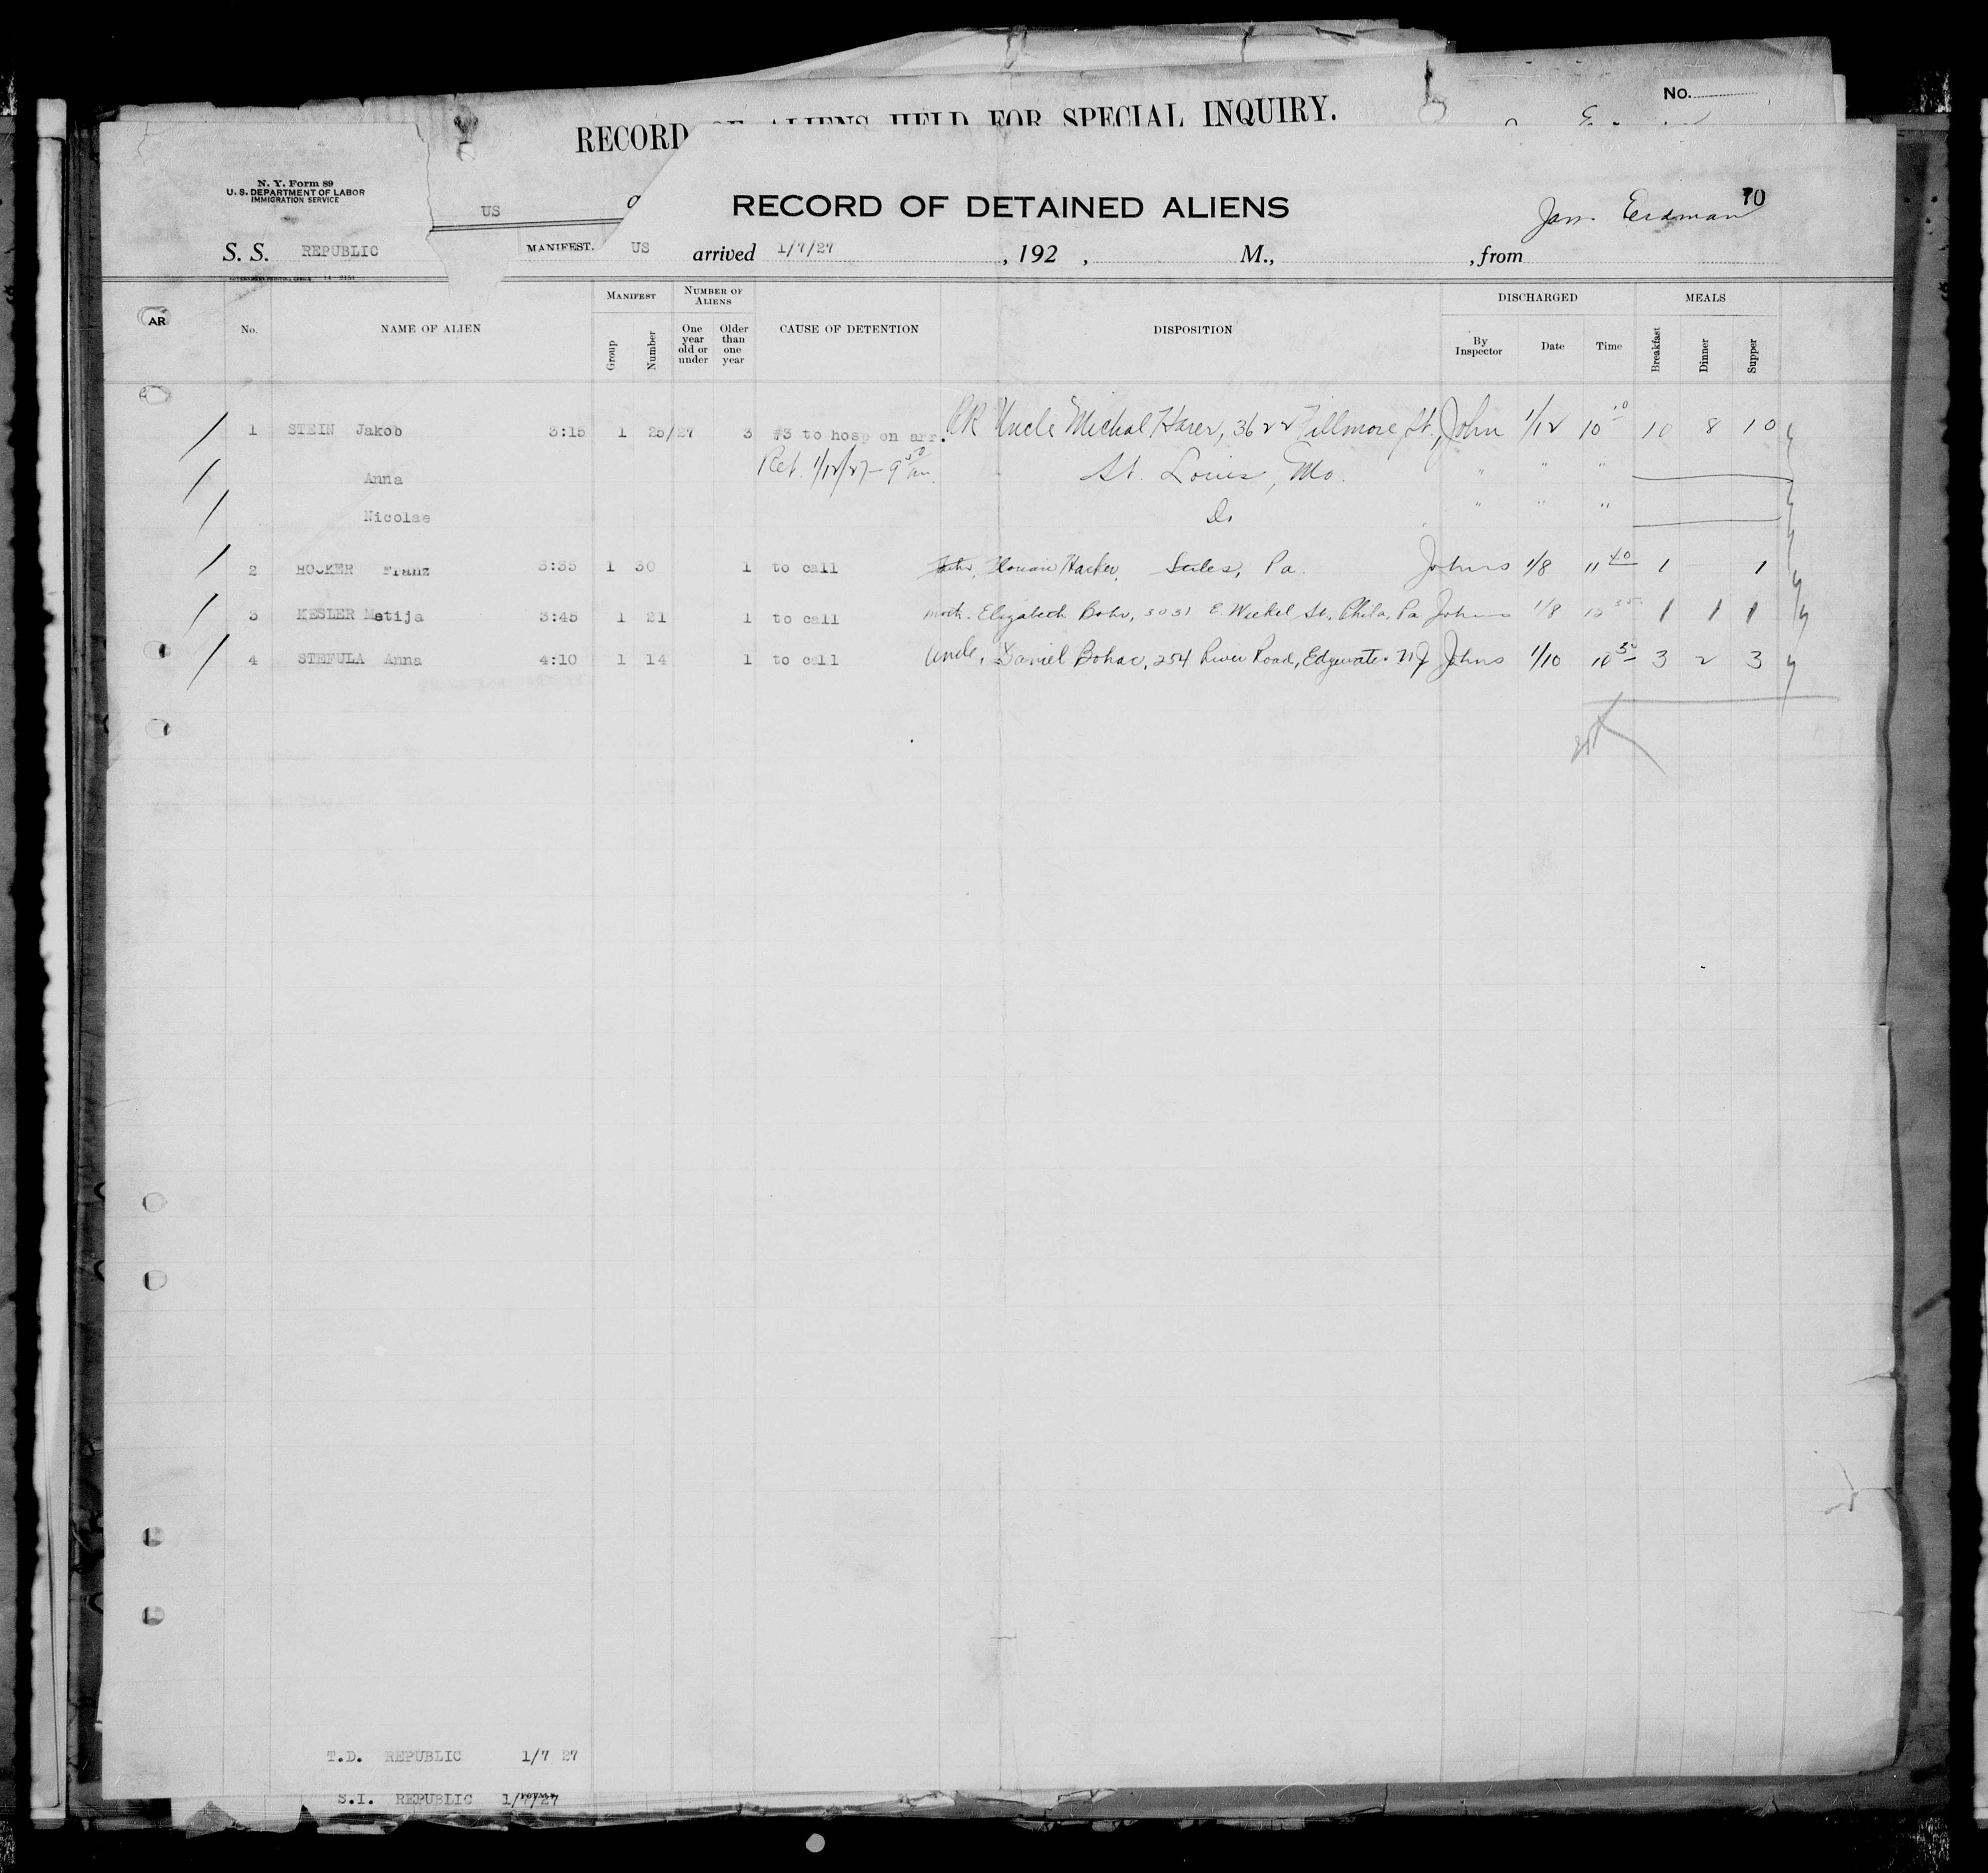 No.
RECORD OF ALIENS HELD FOR SPECIAL INQUIRY.
N. Y. Form 89
U. S. DEPARTMENT OF LABOR
IMMIGRATION SERVICE
US
RECORD OF DETAINED ALIENS
70
Jan. Erdman
S. S. REPUBLIC MANIFEST. US arrived 1/7/27, 192 , M., , from
GOVERNMENT PRINTING OFFICE
AR
No. NAME OF ALIEN MANIFEST Group Number NUMBER OF ALIENS One year old or under Older than one year CAUSE OF DETENTION DISPOSITION DISCHARGED By Inspector Date Time MEALS Breakfast Dinner Supper
1 STEIN Jakob 3:15 1 25/27 3 #3 to hosp on arr. RR Uncle Michal Harer, 3622 Fillmore St., John 1/12 10 10 8 10
Anna Ret. 1/12/27 - 9 50 am. St. Louis, Mo. " " "
Nicolae Do " " "
2 HOCKER Franz 3:35 1 30 1 to call Florian Hacker, Stiles, Pa. Johns 1/8 11 40 1 1
3 KESLER Matija 3:45 1 21 1 to call moth. Elizabeth Bohr, 3031 E. Weikel St., Phila. Pa Johns 1/8 12 35 1 1 1
4 STEFULA Anna 4:10 1 14 1 to call Uncle, Daniel Bohac, 254 River Road, Edgewater NJ Johns 1/10 10 30 3 2 3
T.D. REPUBLIC 1/7 27
S.I. REPUBLIC 1/7/27